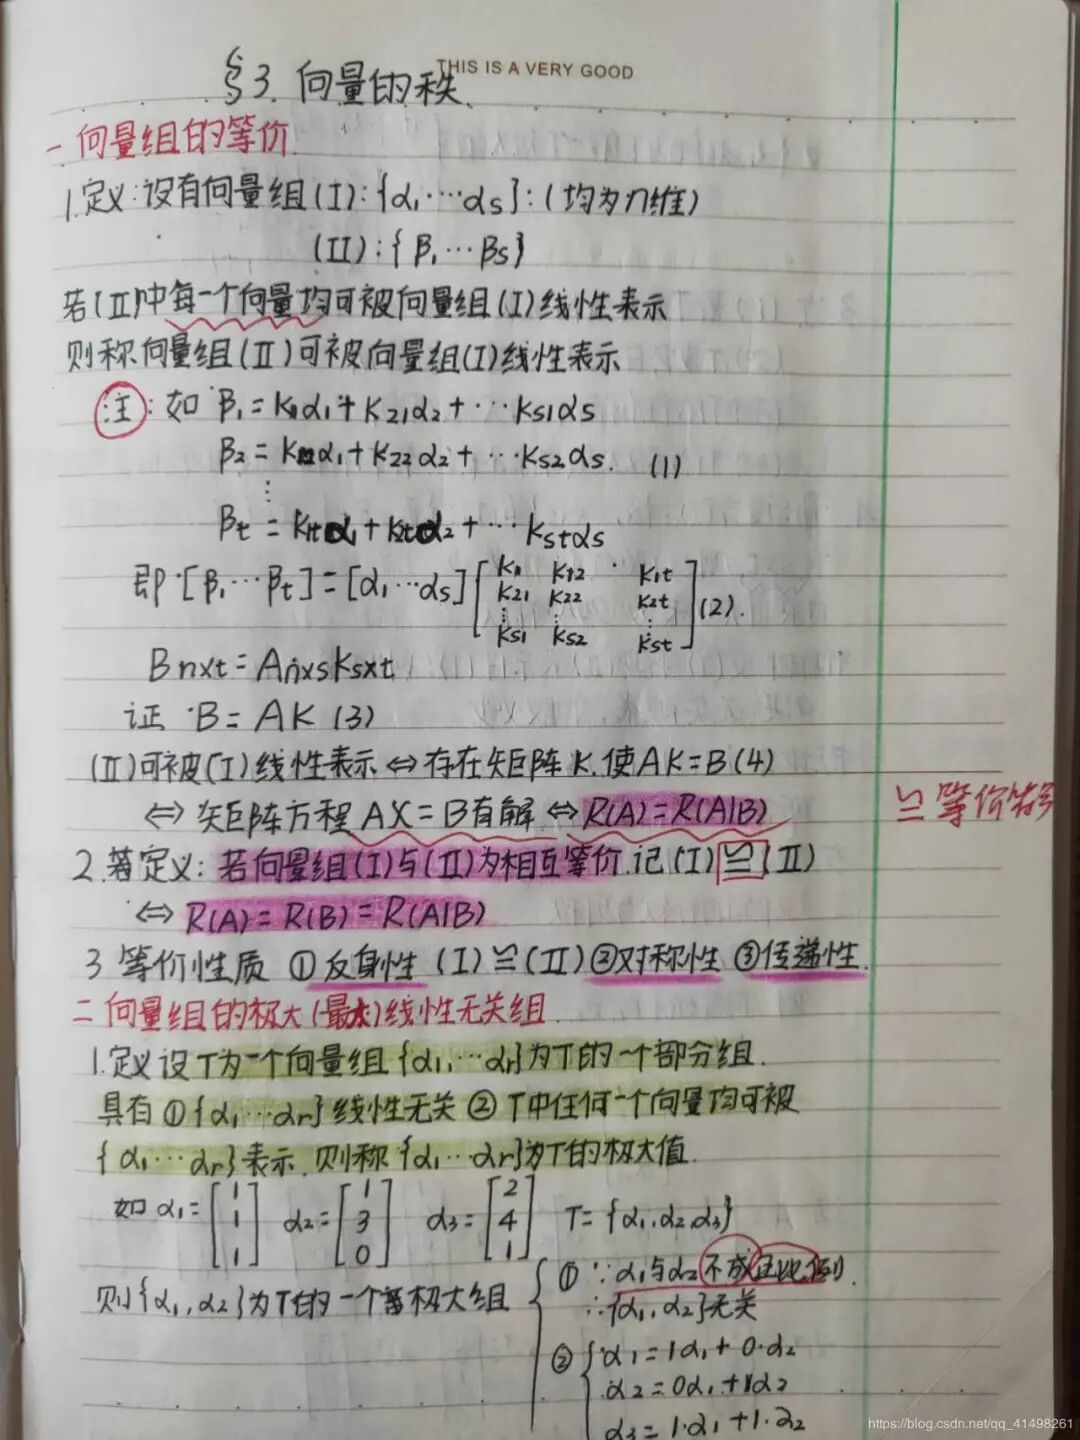 THIS IS A VERY GOOD
§3. 向量的秩.
一 向量组的等价
1.定义:设有向量组(I):{α₁…αs}:(均为n维)
(II):{β₁…βs}
若(II)中每一个向量均可被向量组(I)线性表示
则称向量组(II)可被向量组(I)线性表示
注:如 β₁=K₁₁α₁+K₂₁α₂+…Ks₁αs
β₂=K₁₂α₁+K₂₂α₂+…Ks₂αs. (1)
⋮
βt=K₁tα₁+K₂tα₂+…Kstαs
即[β₁…βt]=[α₁…αs][K₁₁ K₁₂ … K₁t
K₂₁ K₂₂ K₂t
⋮ ⋮ ⋮
Ks₁ Ks₂ Kst](2).
Bn×t=An×sKs×t
证 B=AK (3)
(II)可被(I)线性表示⇔存在矩阵K.使AK=B(4)
⇔矩阵方程AX=B有解⇔R(A)=R(A|B)
≌等价符号
2.若定义:若向量组(I)与(II)为相互等价.记(I)≌(II)
⇔R(A)=R(B)=R(A|B)
3 等价性质 ①反身性 (I)≌(II) ②对称性 ③传递性.
二 向量组的极大(最大)线性无关组.
1.定义设T为一个向量组{α₁,…αr}为T的一个部分组.
具有①{α₁…αr}线性无关②T中任何一个向量均可被
{α₁…αr}表示.则称{α₁…αr}为T的极大值.
如α₁=[1 1 1] α₂=[1 3 0] α₃=[2 4 1] T={α₁,α₂,α₃}
则{α₁,α₂}为T的一个极大组
①∵α₁与α₂不成正比例.
∴{α₁,α₂}无关
②α₁=1α₁+0·α₂
α₂=0α₁+1α₂
α₃=1·α₁+1·α₂
https://blog.csdn.net/qq_41498261